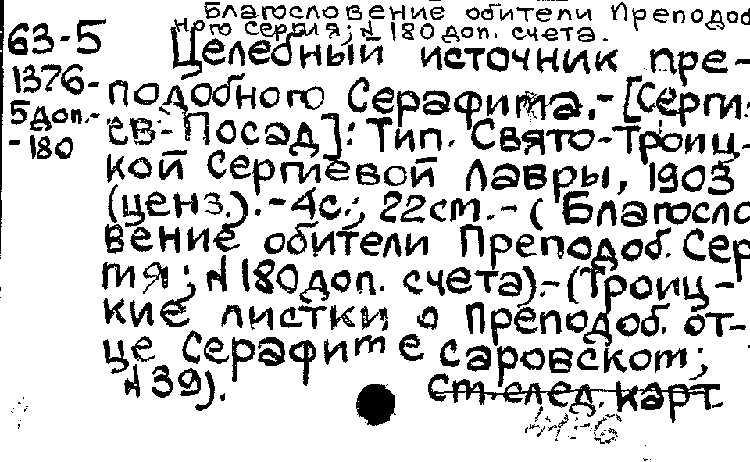 Благословение обители Преподоб
ного Сергия; N 180 доп. счета.
63-5
1376-
5доп.-
-180
Целебный источник пре-
подобного Серафима.-[Серги-
ев-Посад]: Тип. Свято-Троиц-
кой Сергиевой Лавры, 1903
(ценз.).-4с.; 22см.-(Благосло
вение обители Преподоб. Сер
гия; N 180 доп. счета).-(Троиц-
кие листки о Преподоб. от-
це Серафиме Саровском;
N 39).
См.след.карт